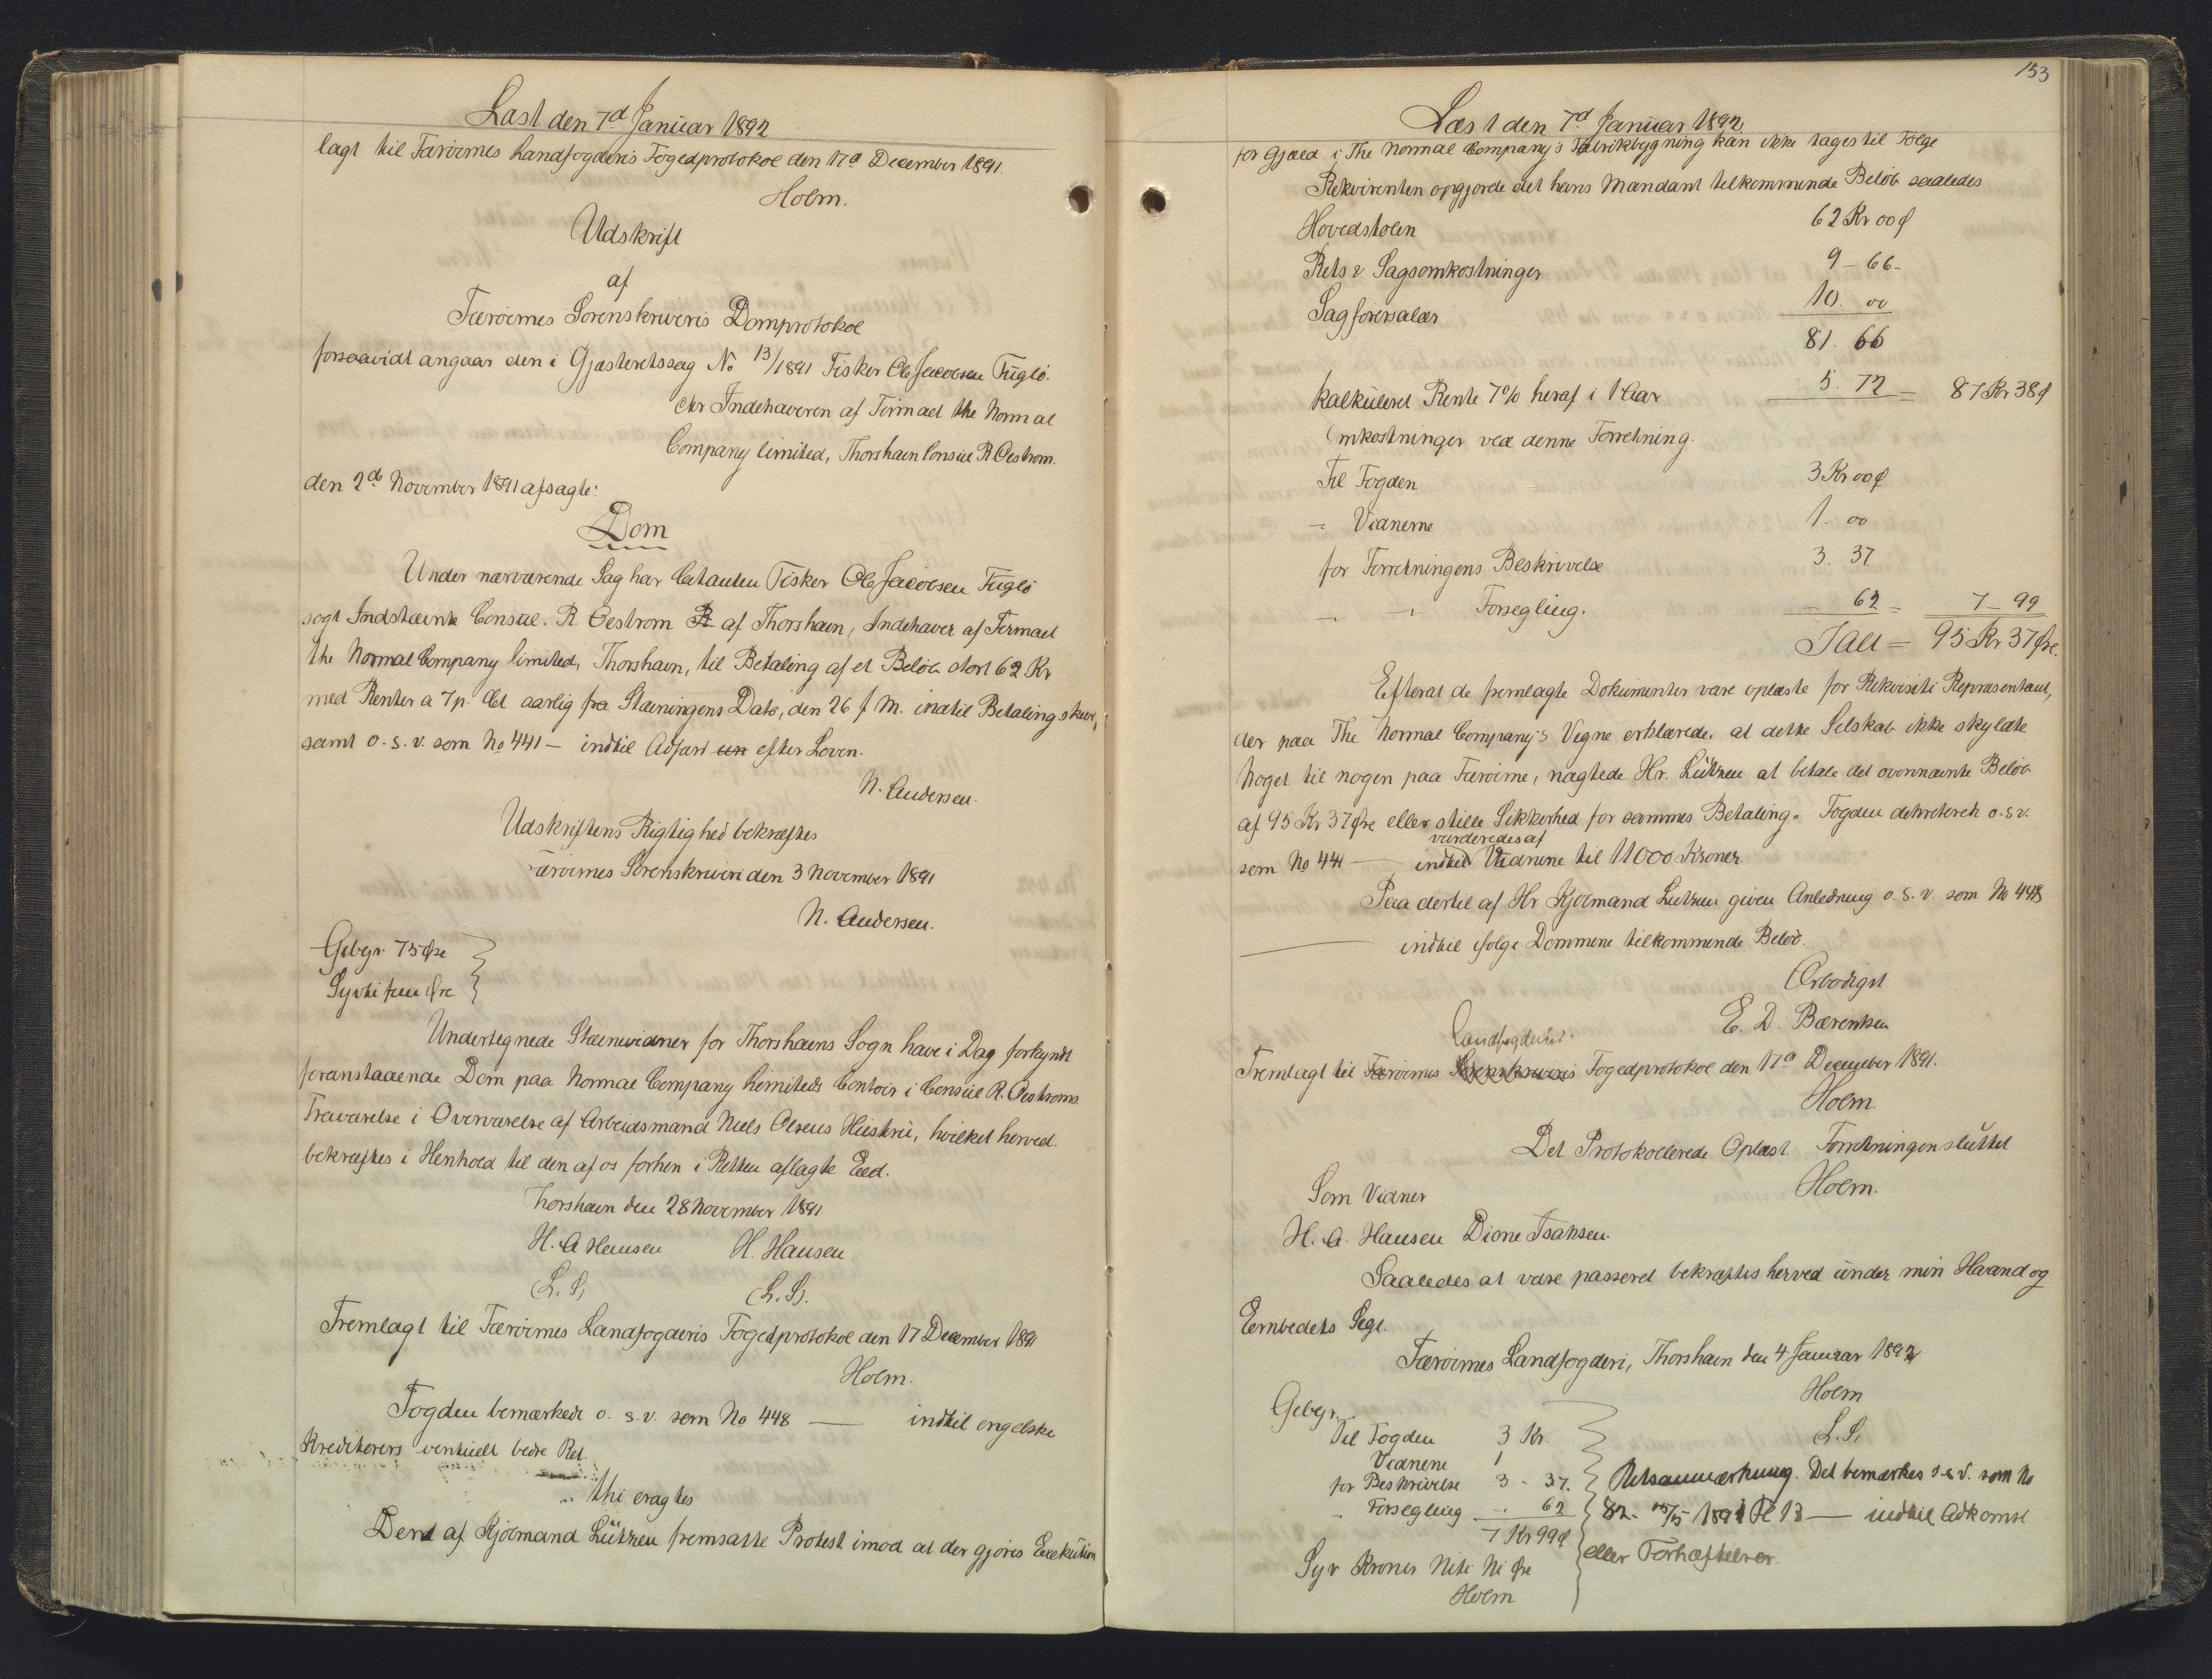 Læst den 7d Januar 1892
lagt til Færöernes Landfogderis Fogedprotokol den 17d December 1891.
Holm.
Udskrift
af
Færöernes Sorenskriveris Domprotokol
forsaavidt angaar den i Gjæsteretssag No 13/1891 Fisker Ole Jacobsen Fuglö.
ctr Indehaveren af Firmaet the Normal
Company limited, Thorshavn Consul R. Oestrom.
den 2de November 1891 afsagte:
Dom
Under nærværende Sag har Citanten Fisker Ole Jacobsen Fuglö
sögt Indstævnte Consul. R. Oestrom af Thorshavn, Indehaver af Firmaet
the Normal Company limited, Thorshavn, til Betaling af et Belöb stort 62 Kr
med Renter a 7 p. Ct aarlig fra Stævningens Dato, den 26 f. M. indtil Betaling skeer,
samt o. s. v. som No 441 — indtil Adfærd efter Loven.
N. Andersen.
Udskriftens Rigtighed bekræftes
Færöernes Sorenskriveri den 3 November 1891
N. Andersen.
Gebyr. 75 Øre
Syvti fem Øre
Undertegnede Stævnevidner for Thorshavns Sogn have i Dag forkyndt
foranstaaende Dom paa Normal Company limiteds Contoir i Consul R. Oestroms
Fraværelse i Overværelse af Arbeidsmand Niels Olseus Hüskrü, hvilket herved
bekræftes i Henhold til den af os forhen i Retten aflagte Eed.
Thorshavn den 28 November 1891
H. A Hansen H. Hansen
(L. S.) (L. S.).
Fremlagt til Færöernes Landfogderis Fogedprotokol den 17 December 1891
Holm.
Fogden bemærkede o. s. v. som No 448 — indtil engelske
Kreditorers eventuelt bedre Ret.
thi eragtes
Den af Kjöbmand Lützen fremsatte Protest imod at der gjöres Exekution
153
Læst den 7d Januar 1892.
for Gjæld i The Normal Company's Fabrikbygning kan ikke tages til Fölge
Rekvirenten opgjorde det hans Mandant tilkommende Belöb saaledes
Hovedstolen 62 Kr 00 Ø
Rets & Sagsomkostninger 9 - 66 -
Sagförersalær 10. 00
81. 66
kalkuleret Rente 7% heraf i 1 Aar 5. 72 = 87 Kr 38 Ø
Omkostninger ved denne Forretning.
Til Fogden 3 Kr 00 Ø
- Vidnerne 1. 00
for Forretningens Beskrivelse 3. 37
- - Forsegling. 62 = 7 - 99
I Alt = 95 Kr 37 Øre.
Efterat de fremlagte Dokumenter vare oplæste for Rekvisiti Repræsentant,
der paa The Normal Company's Vegne erklærede. at dette Selskab ikke skyldte
Noget til nogen paa Færöerne, nægtede Hr. Lützen at betale det ovennævnte Belöb
af 95 Kr 37 Øre eller stille Sikkerhed for sammes Betaling. Fogden dekreterede o. s v.
vurderedes af
som No 441 — indtil Vidnerne til 11000 Kroner
Paa dertil af Hr. Kjöbmand Lützen given Anledning o. s. v. som No 448
— indtil ifölge Dommene tilkommende Belöb.
Ærbödigst
E. D. Bærentsen
Landfogderis
Fremlagt til Færöernes Sorenskriveris Fogedprotokol den 17d December 1891.
Holm.
Det Protokollerede Oplæst. Forretningen sluttet
Holm.
Som Vidner
H. A. Hansen Dione Isaksen.
Saaledes at være passeret bekræftes herved under min Haand og
Embedets Segl.
Færöernes Landfogderi, Thorshavn den 4 Januar 1892
Holm
L. S.
Gebyr.
Til Fogden 3 Kr.
Vidnerne 1
for Beskrivelse 3 - 37.
- Forsegling - . 62
7 Kr 99 Ø
Syv Kroner Niti Ni Øre
Holm
Retsanmærkning. Det bemærkes o. s. v. som No
82. 15/5 1891 Pl 13 — indtil Adkomst
eller Forhæftelser.